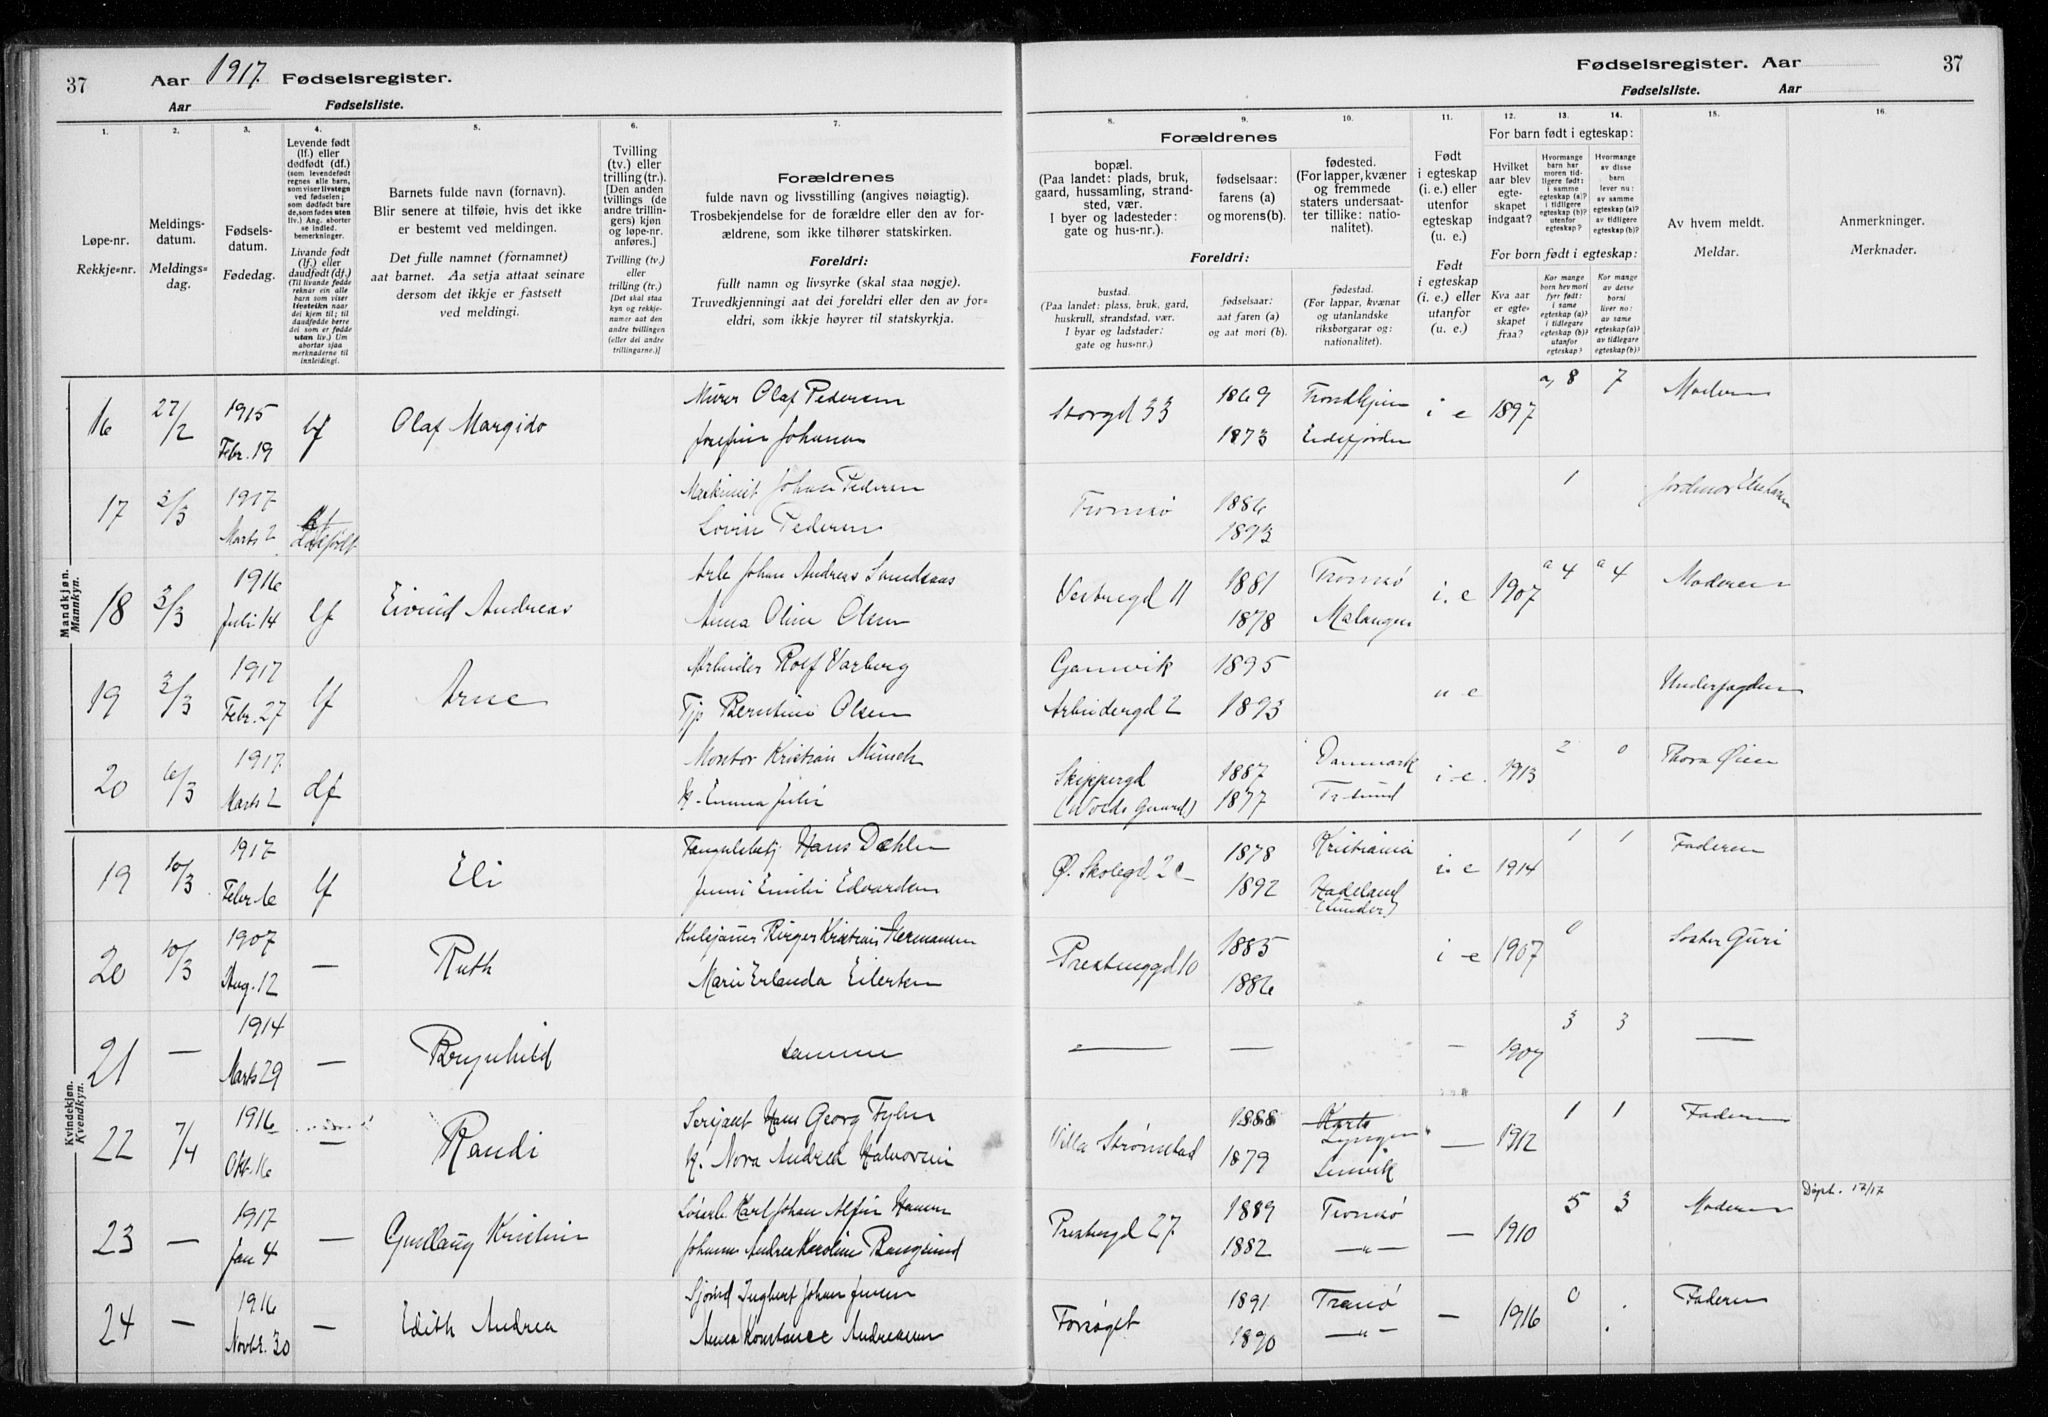 37 Aar 1917. Fødselsregister.
Aar Fødselsliste.
Fødselsregister. Aar 37
Fødselsliste. Aar
1. 2. 3. 4. 5. 6. 7.
8. 9. 10. 11. 12. 13. 14. 15. 16.
Løpe-nr.
Rekkje-nr.
Meldings-
datum.
Meldings-
dag.
Fødsels-
datum.
Fødedag.
Levende født
(lf.) eller
dødfødt (df.)
(som levendefødt
regnes alle barn,
som viser livstegn
ved fødselen;
som dødfødt bare
de, som fødes uten
liv.) Ang. aborter
se indled.
bemerkninger.
Livande født
(lf.) eller
daudfødt (df.)
(Til livande fødde
reknar ein alle
barn som viser
livsteikn naar
dei kjem til; til
daudfødde berre
dei som er fødde
utan liv.) Um
abortar sjaa
merknaderne til
innleidingi.
Barnets fulde navn (fornavn).
Blir senere at tilføie, hvis det ikke
er bestemt ved meldingen.
Det fulle namnet (fornamnet)
aat barnet. Aa setja attaat seinare
dersom det ikkje er fastsett
ved meldingi.
Tvilling
(tv.) eller
trilling (tr.)
[Den anden
tvillings (de
andre trillin-
gers) kjøn
og løpe-nr.
anføres.]
Tvilling (tv.)
eller
trilling (tr.)
[Det skal staa
kyn og rekkje-
numer aat den
andre tvillingen
(eller dei andre
trillingarne.)]
Forældrenes
fulde navn og livsstilling (angives nøiagtig).
Trosbekjendelse for de forældre eller den av for-
ældrene, som ikke tilhører statskirken.
Foreldri:
fullt namn og livsyrke (skal staa nøgje).
Truvedkjenningi aat dei foreldri eller den av for-
eldri, som ikkje høyrer til statskyrkja.
Forældrenes
bopæl.
(Paa landet: plads, bruk,
gaard, hussamling, strand-
sted, vær.
I byer og ladesteder:
gate og hus-nr.).
fødselsaar:
farens (a)
og morens (b).
fødested.
(For lapper, kvæner
og fremmede
staters undersaat-
ter tillike: natio-
nalitet).
Foreldri:
bustad.
(Paa landet: plass, bruk, gard,
huskrull, strandstad, vær.
I byar og ladstader:
gate og hus-nr.)
fødselsaar:
aat faren (a)
og aat mori (b).
fødestad.
(For lappar, kvænar
og utanlandske
riksborgarar og:
nationalitet).
Født
i egteskap
(i. e.) eller
utenfor
egteskap
(u. e.)
Født
i egteskap
(i. e.) eller
utanfor
(u. e.)
For barn født i egteskap:
Hvilket
aar blev
egte-
skapet
indgaat?
Hvormange
barn har
moren tid-
ligere født:
i samme
egteskap (a)?
i tidligere
egteskap (b)?
utenfor
egteskap?
Hvormange
av disse
barn
lever nu:
av samme
egteskap (a)?
av tidligere
egteskap (b)?
For born født i egteskap:
Kva aar
er egte-
skapet
fraa?
Kor mange
born hev mori
fyrr født:
i same
egteskap (a)?
i tidlegare
egteskap (b)?
utanfor
egteskap?
Kor mange
av desse
borni
liver no:
av same
egteskap (a)?
av tidlegare
egteskap (b)?
Av hvem meldt.
Meldar.
Anmerkninger.
Merknader.
Mandkjøn.
Mannkyn.
16 27/2 1915 Febr. 19 lf Olaf Margido Murer Olaf Pedersen Josefine Johansen Storgd 33 1869 1873 Trondhjem i e 1897 a, 8 7 Moderen
17 3/3 1917 Marts 2 Johan Pedersen Lovise Pedersen Tromsø 1886 1893 1 Jordmor
18 3/3 1916 Juli 14 lf Eivind Andreas Arb Johan Andreas Sandaas Anna Oline Olsen Vestregd 11 1881 1878 Tromsø Malangen i. e 1907 a 4 a 4 Moderen
19 3/3 1917 Febr. 27 lf Arne Arbeider Rolf Varberg Tjp Berntine Olsen Gamvik Arbeidergd 2 1895 1893 u e Underfogden
20 6/3 1917. Marts 2 df Montør Kristian Münch H. Emma Julie Skippergd 1887 1877 Danmark i e. 1913 2 0 Thora Øien
Kvindekjøn.
Kvendkyn.
19 10/3 1917 Febr 6 lf Eli Hans Dæhlen Jenni Emilie Edvardsen Ø. Skolegd. 2c 1878 1892 Kristiania Hadeland i. e 1914 1 1 Faderen
20 10/3 1907 Aug. 12 — Ruth Birger Kristian Hermansen Marie Erlanda Eilertsen 1885 1886 i e 1907 0 Søster Guri
21 — 1914 Marts 29 — Brynhild sammen — — — 1907 3 3 —
22 7/4 1916 Okt. 16 — Randi Serjant Hans Georg Fylin H. Nora Andrea Halvorsen Villa Strømstad 1888 1879 Lyngen Lenvik — 1912 1 1 Faderen
23 — 1917 Jan 4 — Gudlaug Kristine Karl Johan Alfin Hansen Johanne Andrea Karoline Bangsund Prestengd 27 1889 1882 Tromsø —"— — 1910 5 3 Moderen Døpt. 17/17
24 — 1916 Novbr. 30 — Edith Andrea Ingbert Johan Jensen Anna Konstance Andreassen Forsøget 1891 1890 Tranø —"— — 1916 0 . Faderen